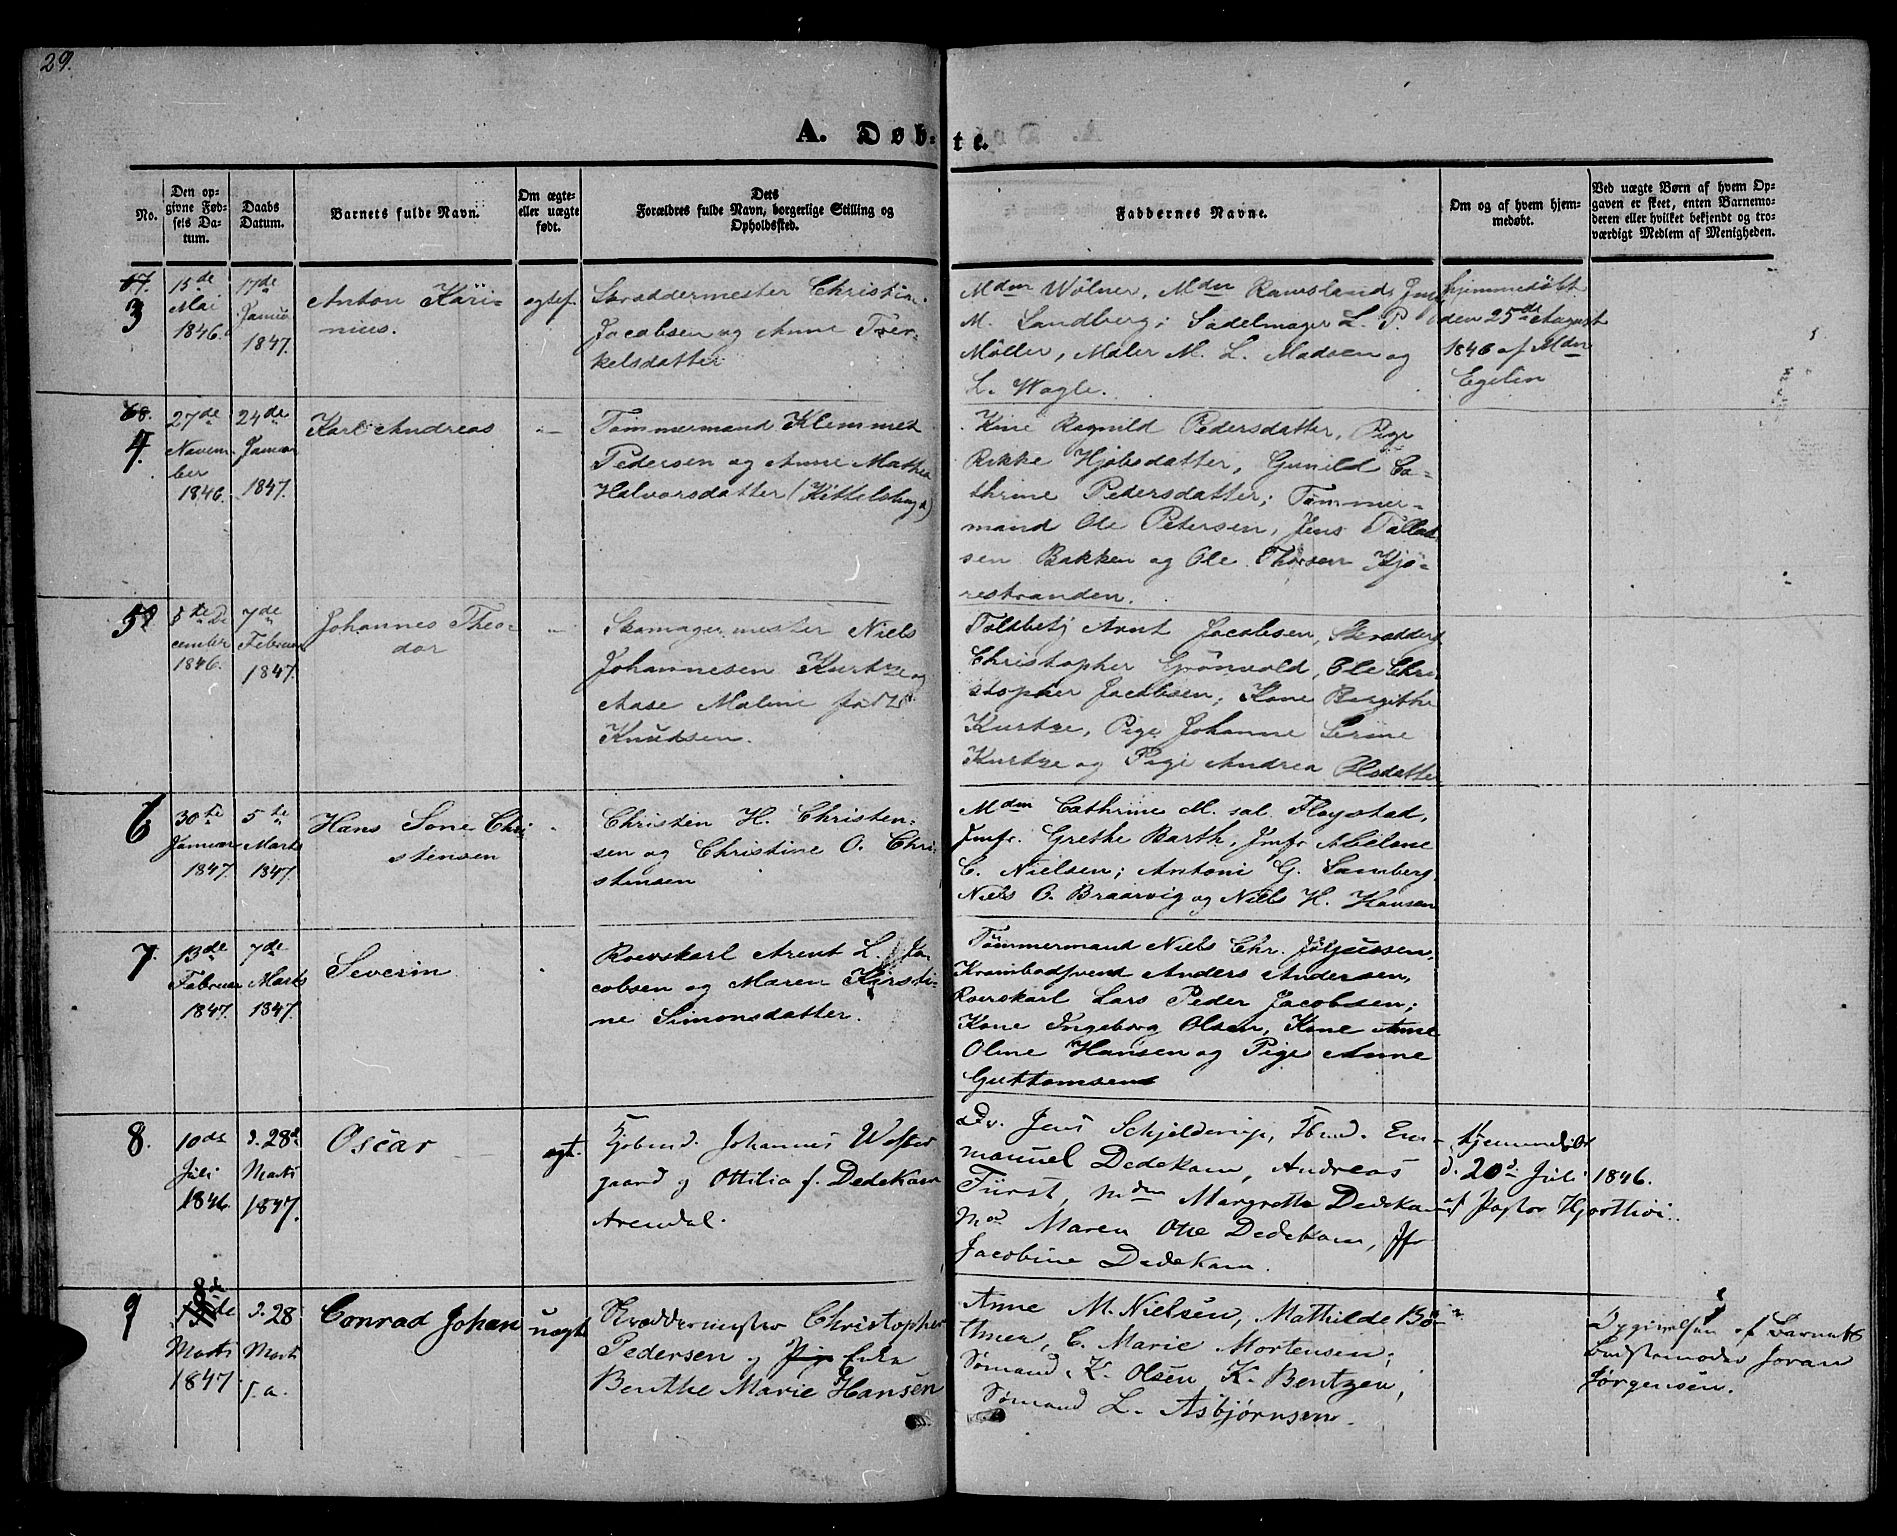 29.
A. Døb-
te.
No.
Den op-
givne Fød-
sels Da-
tum.
Daabs
Datum.
Barnets fulde Navn.
Om ægte-
eller uægte
født.
Dets
Forældres fulde Navn, borgerlige Stilling og
Opholdssted.
Faddernes Navne.
Om og af hvem hjem-
medøbt.
Ved uægte Børn af hvem Op-
gaven er skeet, enten Barnemo-
deren eller hvilket bekjendt og tro-
værdigt Medlem af Menigheden.
3
15de
Mai
1846.
17de
Januar
1847.
Anton Kari-
nius.
ægtef.
Skræddermester Christian
Jacobsen og Anne Ter-
kelsdatter
Mdm Wölner, Mdm Ravnsland, Jmf
M. Sandberg; Sadelmager L. P.
Möller, Maler M. L. Madsen og
L. Wagle.
hjemmedøbt
den 25de August
1846 af Mdm
Egelin
4.
27de
Novem-
ber
1846.
24de
Januar
1847.
Karl Andreas
Tømmermand Klemmet
Pedersen og Anne Mathea
Halvorsdatter (Kittelsbugt)
Kone Ragnild Pedersdatter, Pige
Rikke Hjobsdatter, Gunild Ca-
thrine Pedersdatter; Tømmer-
mand Ole Petersen, Jens Tallak-
sen Bakken og Ole Thorsen Kjø-
restranden.
5
5te De
cember
1846.
7de
Februar
1847.
Johannes Theo-
dor
Skomagermester Niels
Johannesen Kurtze og
Aase Maline født
Knudsen.
Toldbetj Arnt Jacobsen, Skrædder
Christopher Grönvold, Ole Chri
stopher Jacobsen; Kone Birgithe
Kurtze, Pige Johanne Serine
Kurtze og Pige Andrea Olsdatter
6
30te
Januar
1847.
5te
Marts
1847.
Hans Sone Chri
stensen
Christen H. Christen-
sen og Christine O. Chri-
stensen
Mdm Cathrine M. sal. Fløystad,
Jmfr. Grethe Barth, Jmfr Abelone
C. Nielsen; Antoni G. Samberg,
Niels O. Braarvig og Niels H. Hansen
7.
13de
Februar
1847.
7de
Marts
1847.
Severin
Roerskarl Arent L. Ja-
cobsen og Maren Kirsti-
ne Simonsdatter.
Tømmermand Niels Chr.
Krambodsvend Anders Andersen,
Roerskarl Lars Peder Jacobsen;
Kone Ingeborg Olsen, Kone Anne
Oline Hansen og Pige Anne
Guttomsen
8.
10de
Juli
1846.
d. 28d
Marts
1847.
Oscar
ægt.
Kjøbmd. Johannes Wester
gaard og Ottilia f. Dedekam
Arendal.
Dr. Jens Schjelderup, Kbmd. Em-
manuel Dedekam, Andreas
Fürst, Mdm Margrethe Dedekam,
Md Maren Otte Dedekam, Jfr
Jacobine Dedekam.
Hjemmedøbt
d. 20d Juli 1846.
af Pastor
9
8d
Marts
1847.
d. 28
Marts
s. a.
Conrad Johan
uægte
Skræddermester Christopher
Pedersen og Pige
Benthe Marie Hansen
Anne M. Nielsen, Mathilde Bö-
C. Marie Mortensen;
Sømand K. Olsen, K. Bentzen,
Sømand L. Asbjørnsen.
Opgivelsen af Barnets
Joran
Jørgensen.